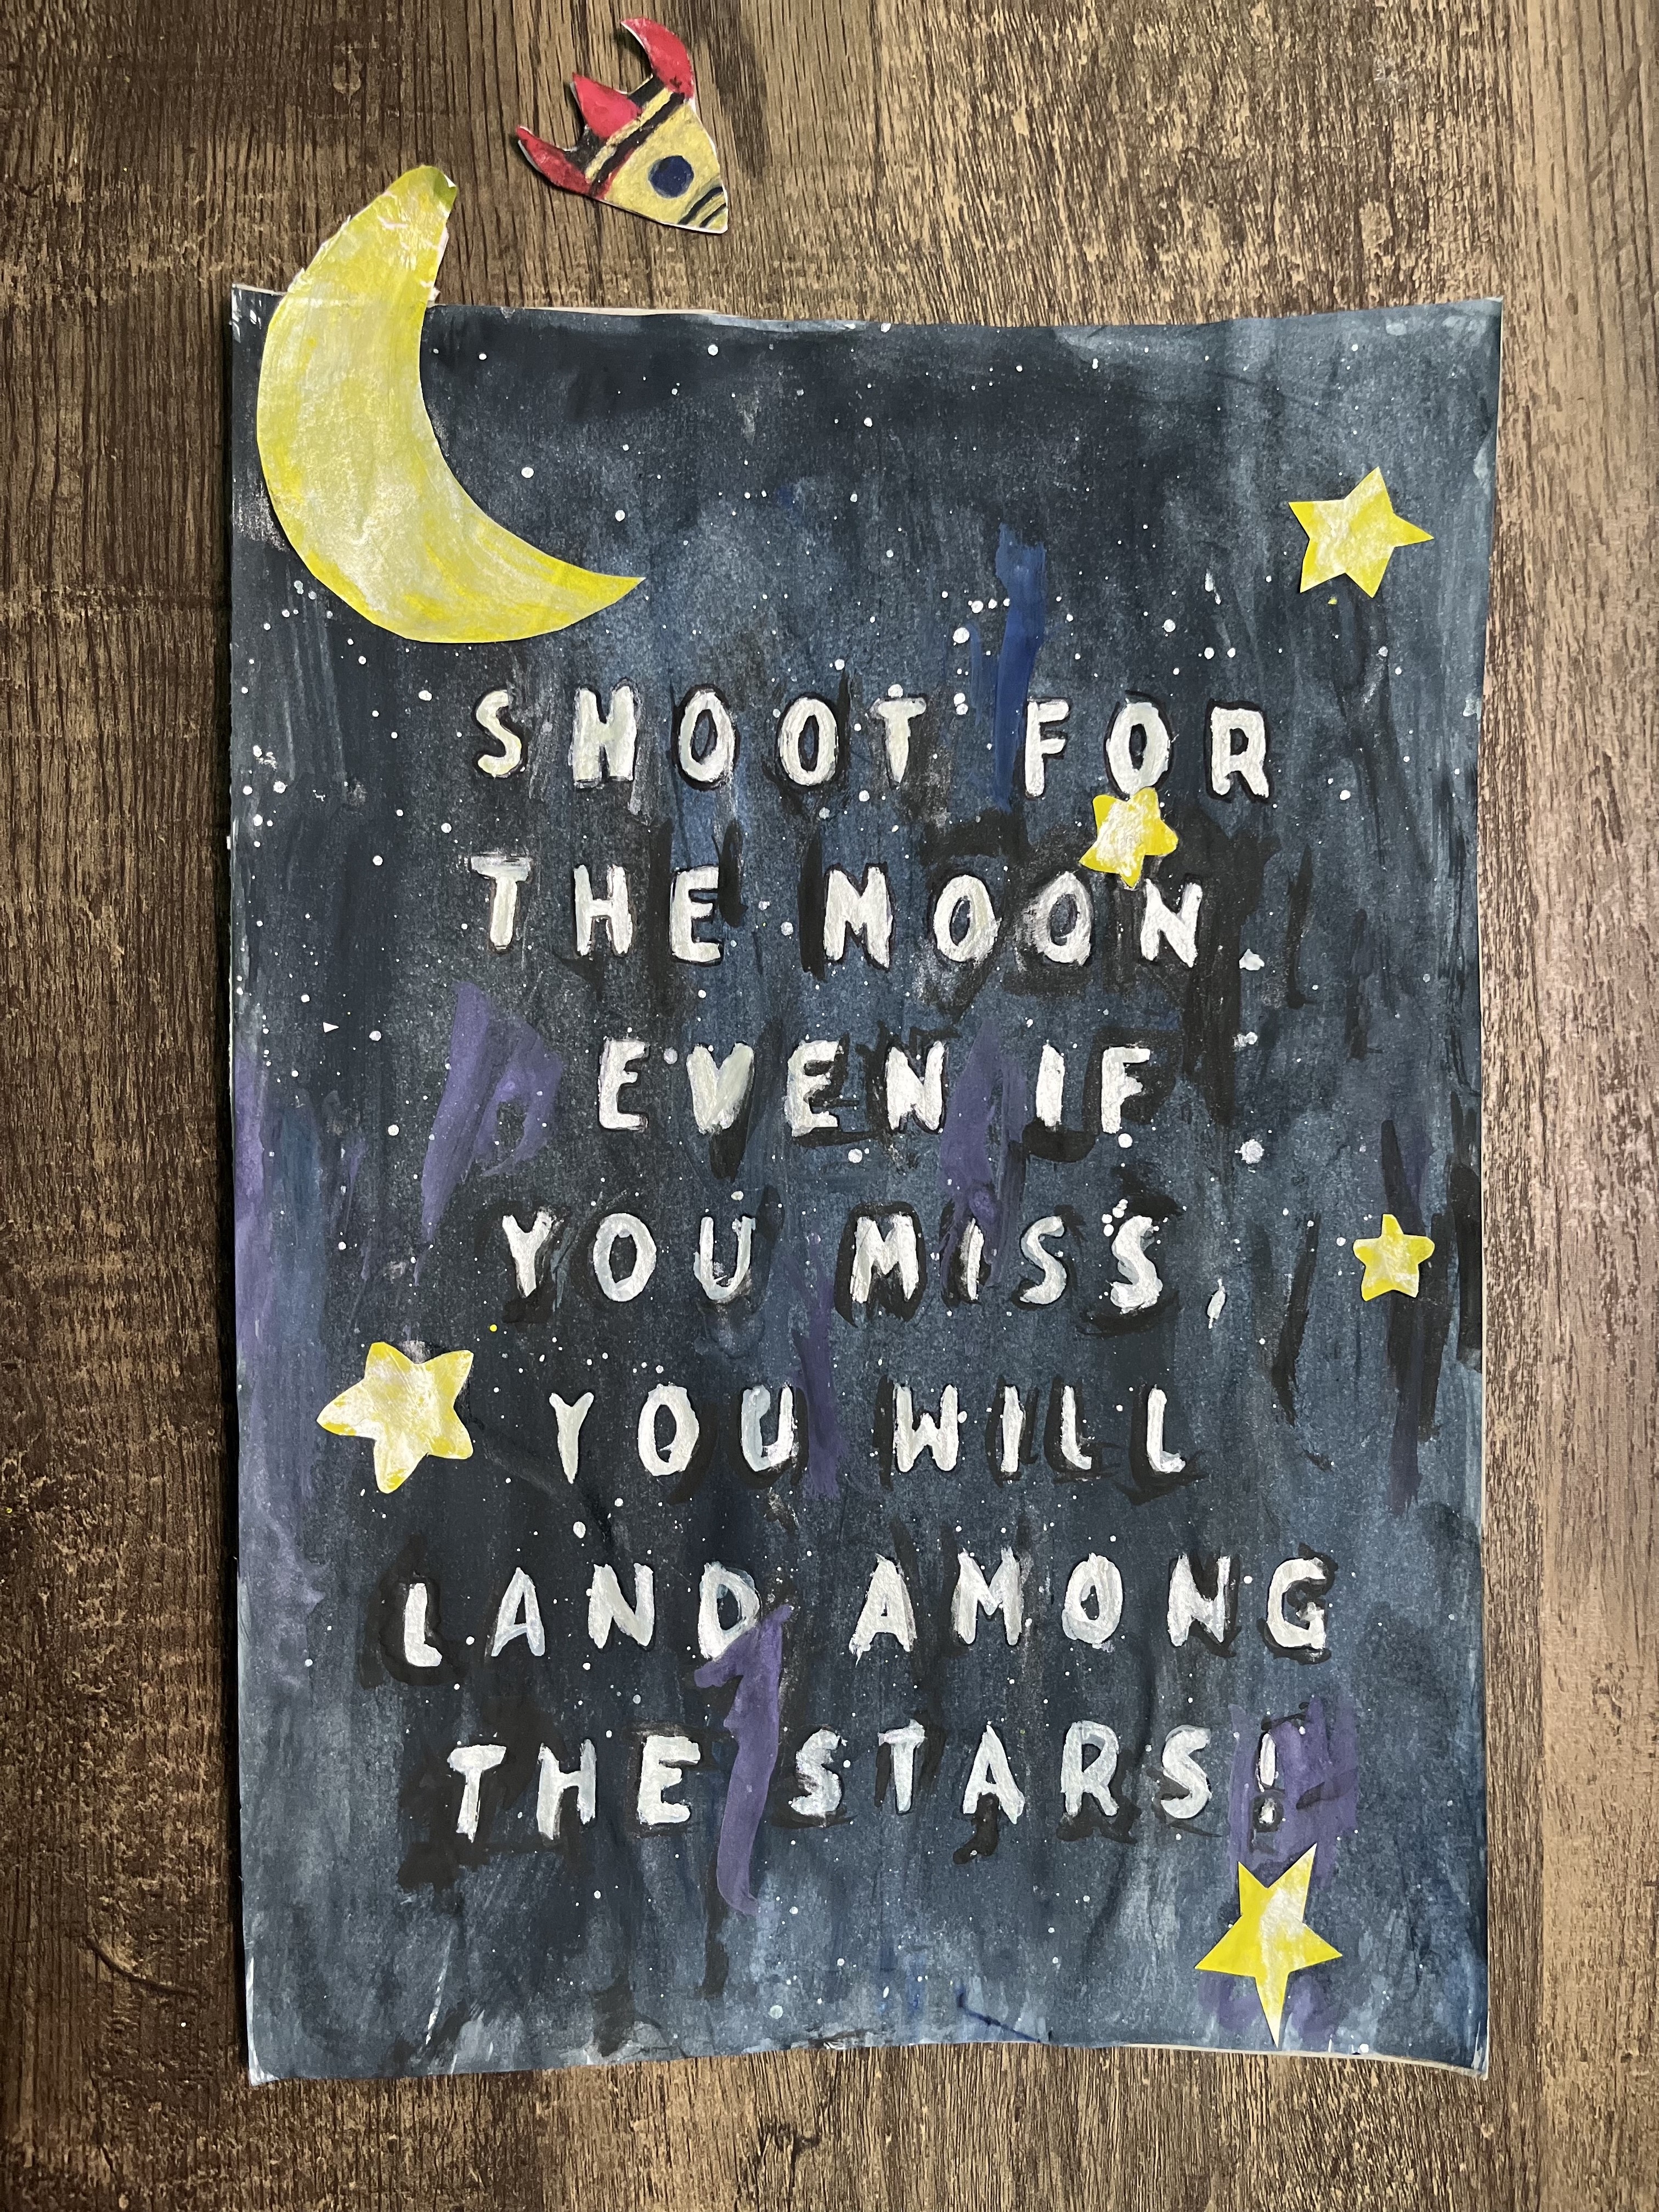 SHOOT FOR
THE MOON.
EVEN IF
YOU MISS,
YOU WILL
LAND AMONG
THE STARS!